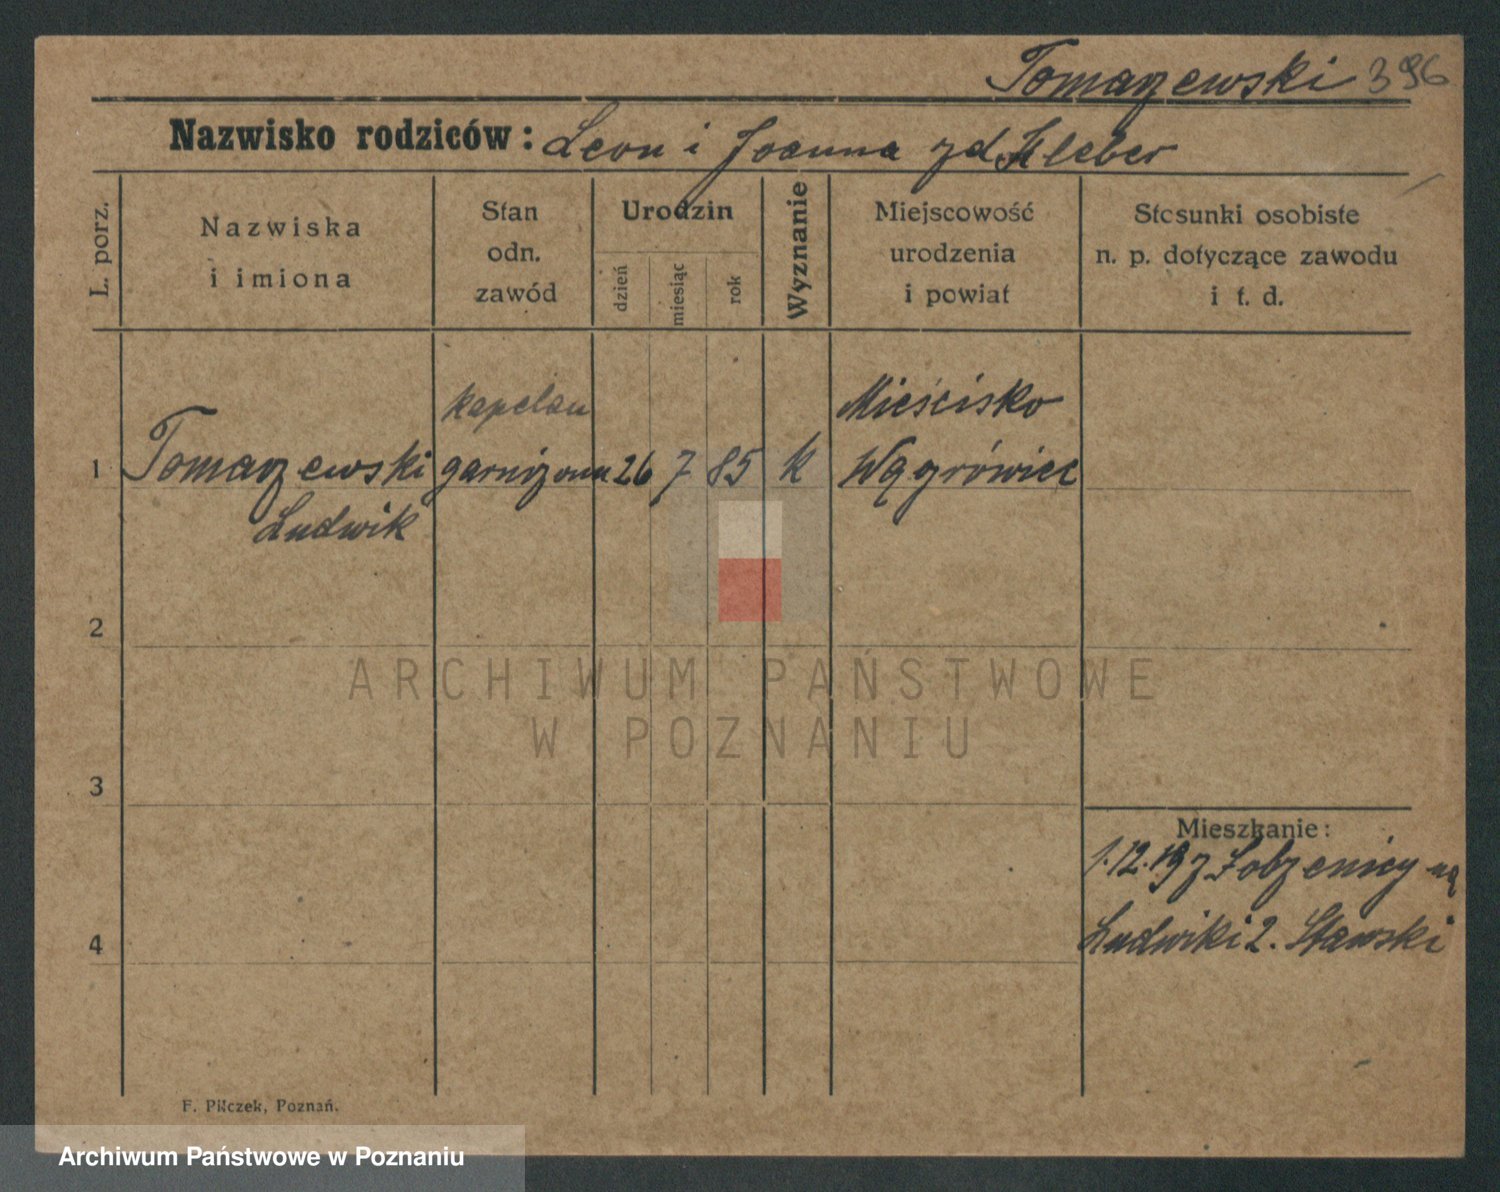 Tomaszewski 396
Nazwisko rodziców: Leon i Joanna zd Kleber
L. porz.
Nazwiska
i imiona
Stan
odn.
zawód
Urodzin
dzień
miesiąc
rok
Wyznanie
Miejscowość
urodzenia
i powiat
Stosunki osobiste
n. p. dotyczące zawodu
i t. d.
kapelan
Mieścisko
1 Tomaszewski garnizonu 26 7 85 k Wągrówiec
Ludwik
2
ARCHIWUM PAŃSTWOWE
W POZNANIU
3
Mieszkanie:
1.12.19 z Łobżenicy na
4 Ludwiki 2. Stawski
F. Pilczek, Poznań.
Archiwum Państwowe w Poznaniu